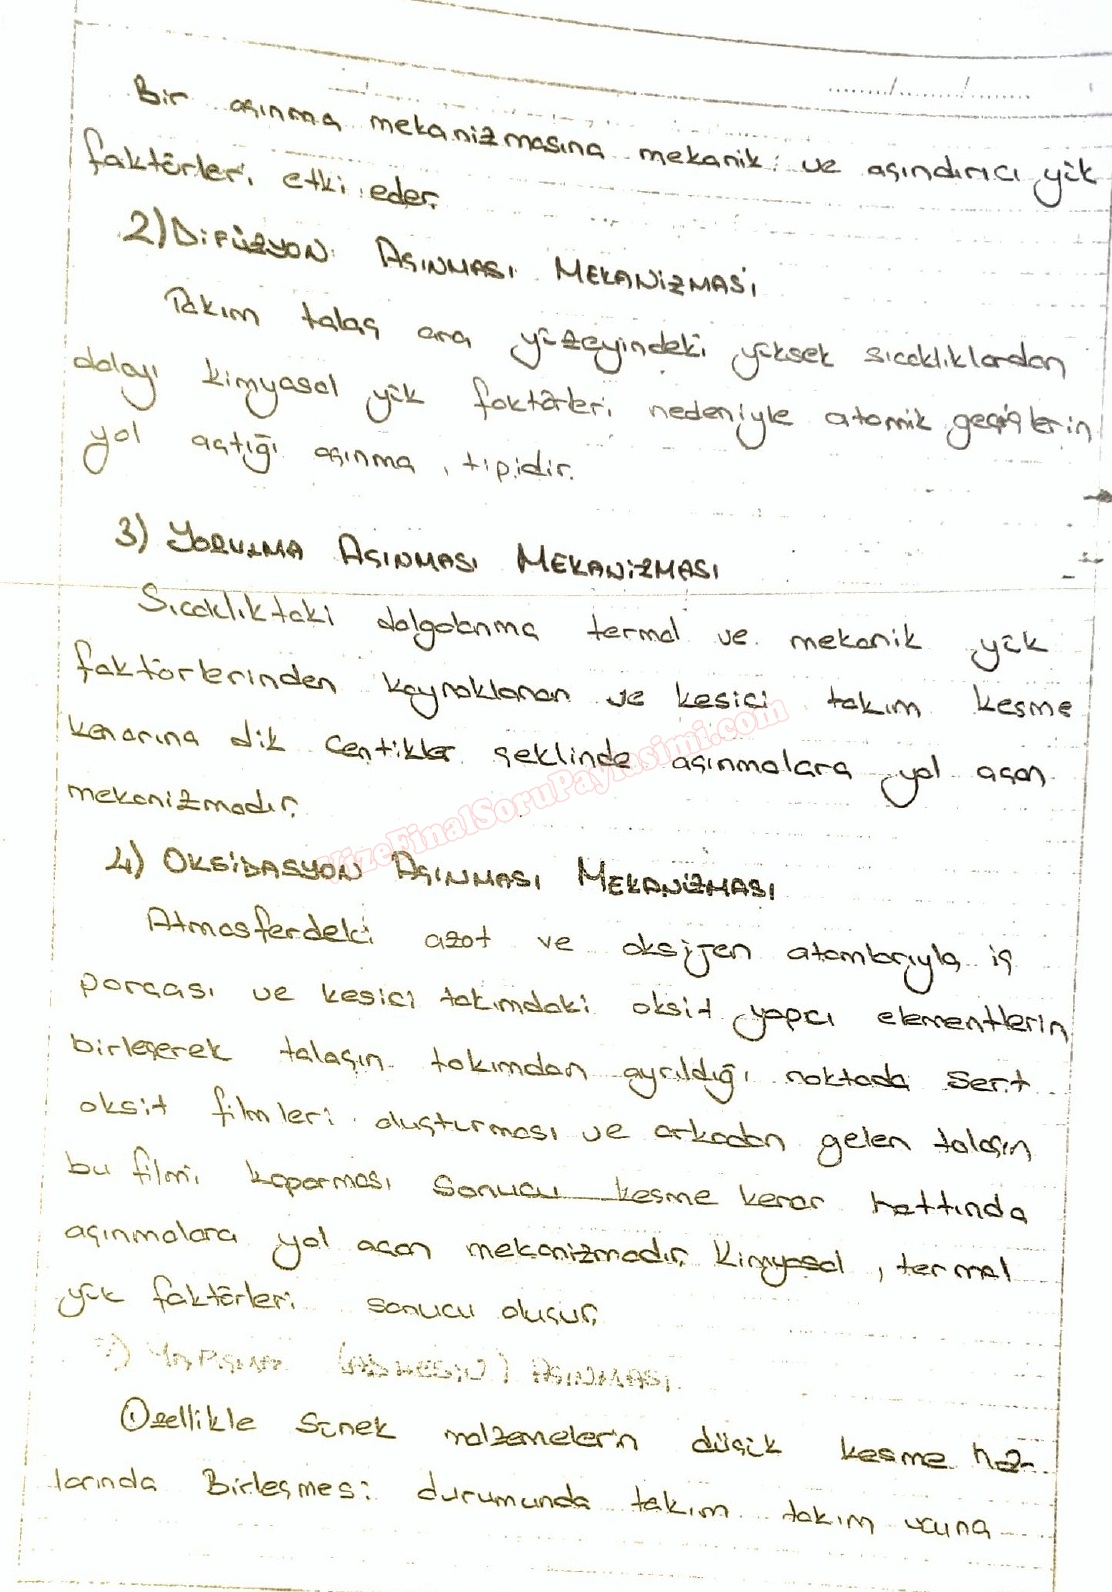 ....../....../......
Bir aşınma mekanizmasına mekanik ve aşındırıcı yük
faktörleri etki eder.
2) DİFÜZYON AŞINMASI MEKANİZMASI
Takım talaş ara yüzeyindeki yüksek sıcaklıklardan
dolayı kimyasal yük faktörleri nedeniyle atomik geçişlerin
yol açtığı aşınma tipidir.
3) YORULMA AŞINMASI MEKANİZMASI
Sıcaklıktaki dalgalanma termal ve mekanik yük
faktörlerinden kaynaklanan ve kesici takım kesme
kenarına dik çentikler şeklinde aşınmalara yol açan
mekanizmadır.
VizeFinalSoruPaylasimi.com
4) OKSİDASYON AŞINMASI MEKANİZMASI
Atmosferdeki azot ve oksijen atomlarıyla iş
parçası ve kesici takımdaki oksit yapıcı elementlerin
birleşerek talaşın takımdan ayrıldığı noktada sert
oksit filmleri oluşturması ve arkadan gelen talaşın
bu filmi koparması sonucu kesme kenar hattında
aşınmalara yol açan mekanizmadır. Kimyasal, termal
yük faktörleri sonucu oluşur.
YAPIŞMA (ADHESİV) AŞINMASI
Özellikle sünek malzemelerin düşük kesme hız-
larında Birleşmesi durumunda takım takım ucuna